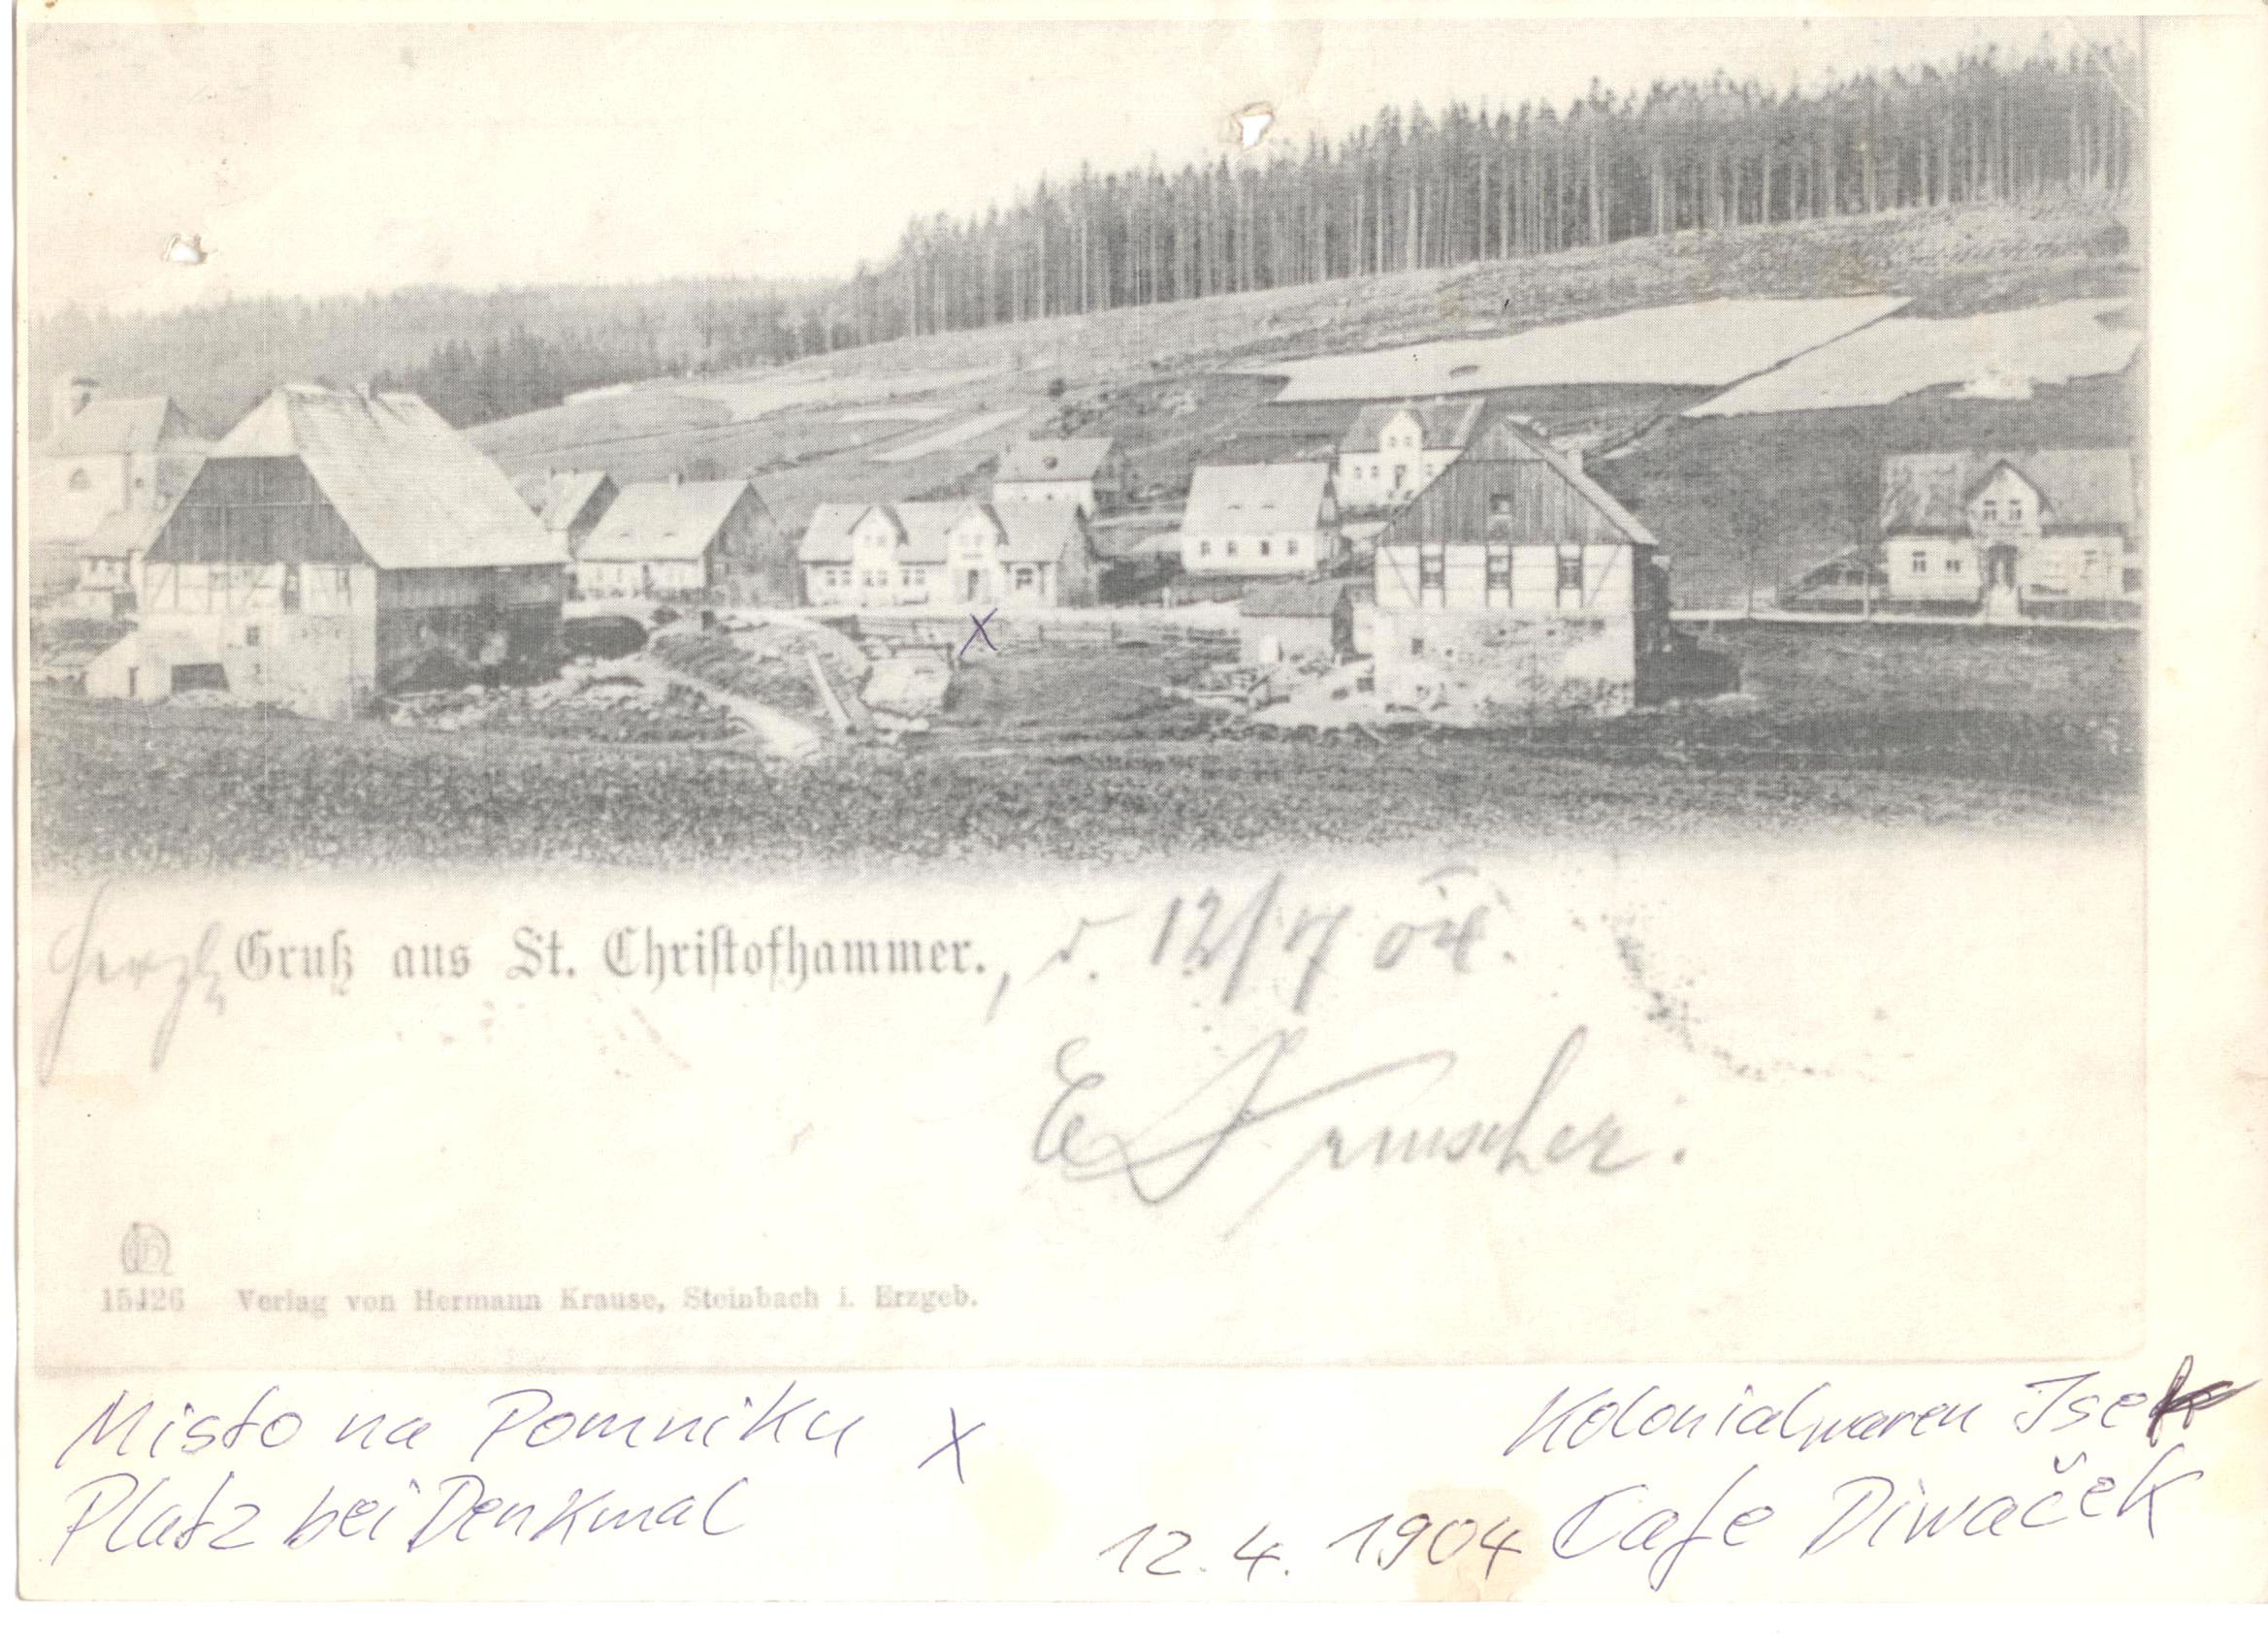 X
Herzl. Gruß aus St. Christofhammer., d. 12/4 04.
15426 Verlag von Hermann Krause, Steinbach i. Erzgeb.
Misto na Pomniku X
Platz bei Denkmal
Kolonialwaren
12. 4. 1904 Cafe Diwaček